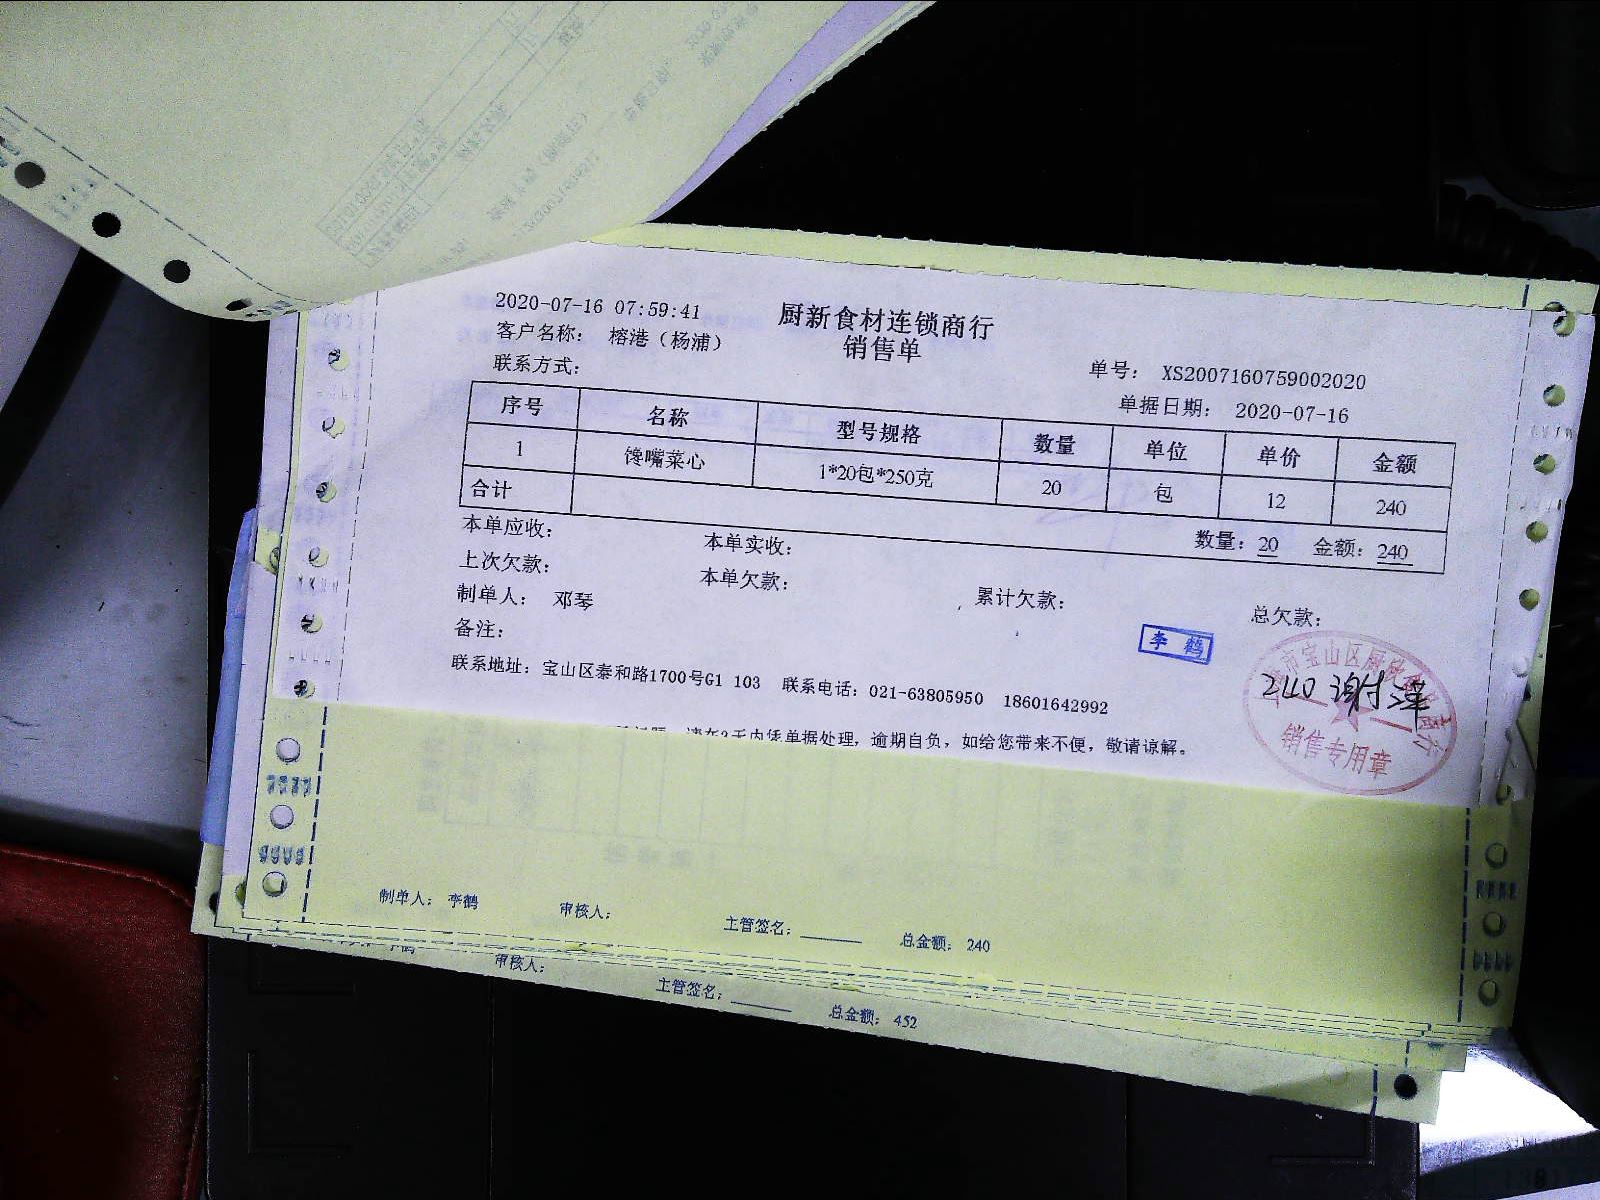 2020-07-16 07:59:41
厨新食材连锁商行
销售单
客户名称： 榕港（杨浦）
联系方式：
单号： XS2007160759002020
单据日期： 2020-07-16
序号 名称 型号规格 数量 单位 单价 金额
1 馋嘴菜心 1*20包*250克 20 包 12 240
合计 数量：20 金额：240
本单应收： 本单实收：
上次欠款： 本单欠款： 累计欠款： 总欠款：
制单人： 邓琴
备注：
李鹤
联系地址：宝山区泰和路1700号G1 103 联系电话：021-63805950 18601642992
请在3天内凭单据处理，逾期自负，如给您带来不便，敬请谅解。
市宝山区厨欣
240 谢
销售专用章
制单人： 李鹤 审核人： 主管签名： 总金额： 240
审核人： 主管签名： 总金额： 452